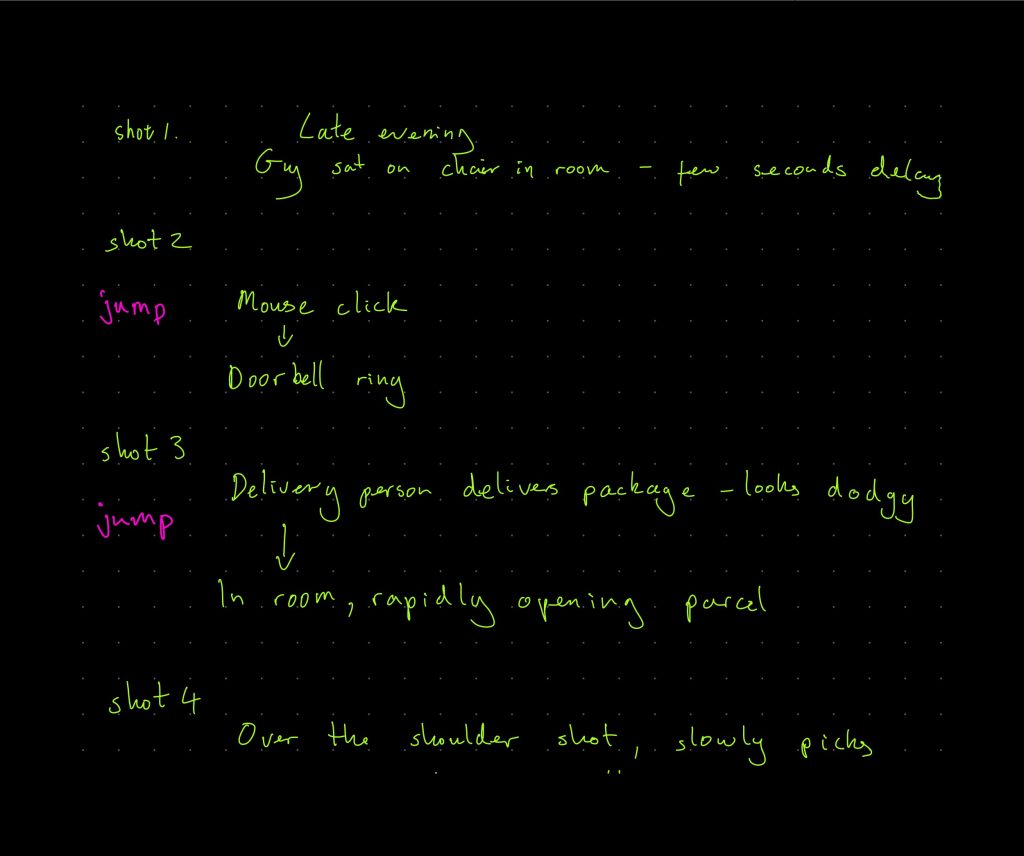 shot 1. Late evening
Guy sat on chair in room – few seconds delay
shot 2
jump Mouse click
↓
Doorbell ring
shot 3
Delivery person delivers package – looks dodgy
jump
↓
In room, rapidly opening parcel
shot 4
Over the shoulder shot, slowly picks